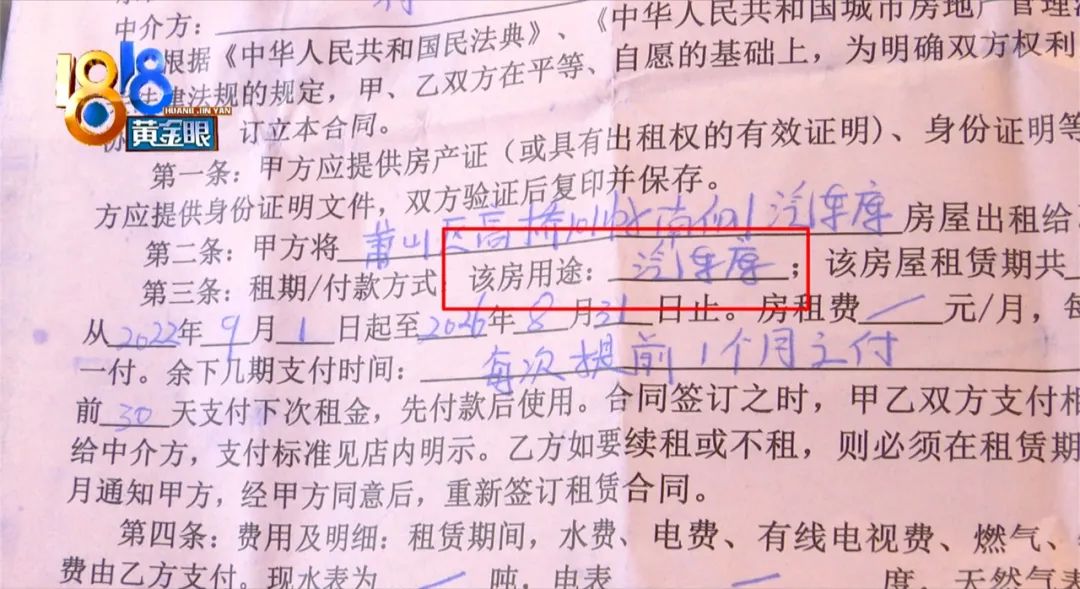 中介方：
根据《中华人民共和国民法典》、《中华人民共和国城市房地产管理
律法规的规定，甲、乙双方在平等、自愿的基础上，为明确双方权利
订立本合同。
1818
HUANG JIN YAN
黄金眼
第一条：甲方应提供房产证（或具有出租权的有效证明）、身份证明等
方应提供身份证明文件，双方验证后复印并保存。
第二条：甲方将萧山区高桥 南侧 汽车库房屋出租给
该房用途：汽车库；该房屋租赁期共
第三条：租期/付款方式
从2022年9月1日起至2026年8月31日止。房租费/元/月，每
一付。余下几期支付时间：每次提前1个月支付
前30天支付下次租金，先付款后使用。合同签订之时，甲乙双方支付相
给中介方，支付标准见店内明示。乙方如要续租或不租，则必须在租赁期
月通知甲方，经甲方同意后，重新签订租赁合同。
第四条：费用及明细：租赁期间，水费、电费、有线电视费、燃气、
费由乙方支付。现水表为/吨，电表/度，天然气表